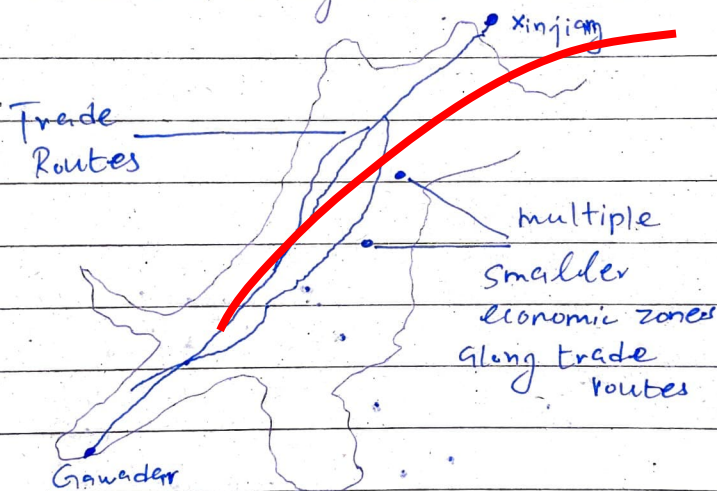 Xinjiang
Trade
Routes
multiple
smalder
economic zones
along trade
routes
Gawadar